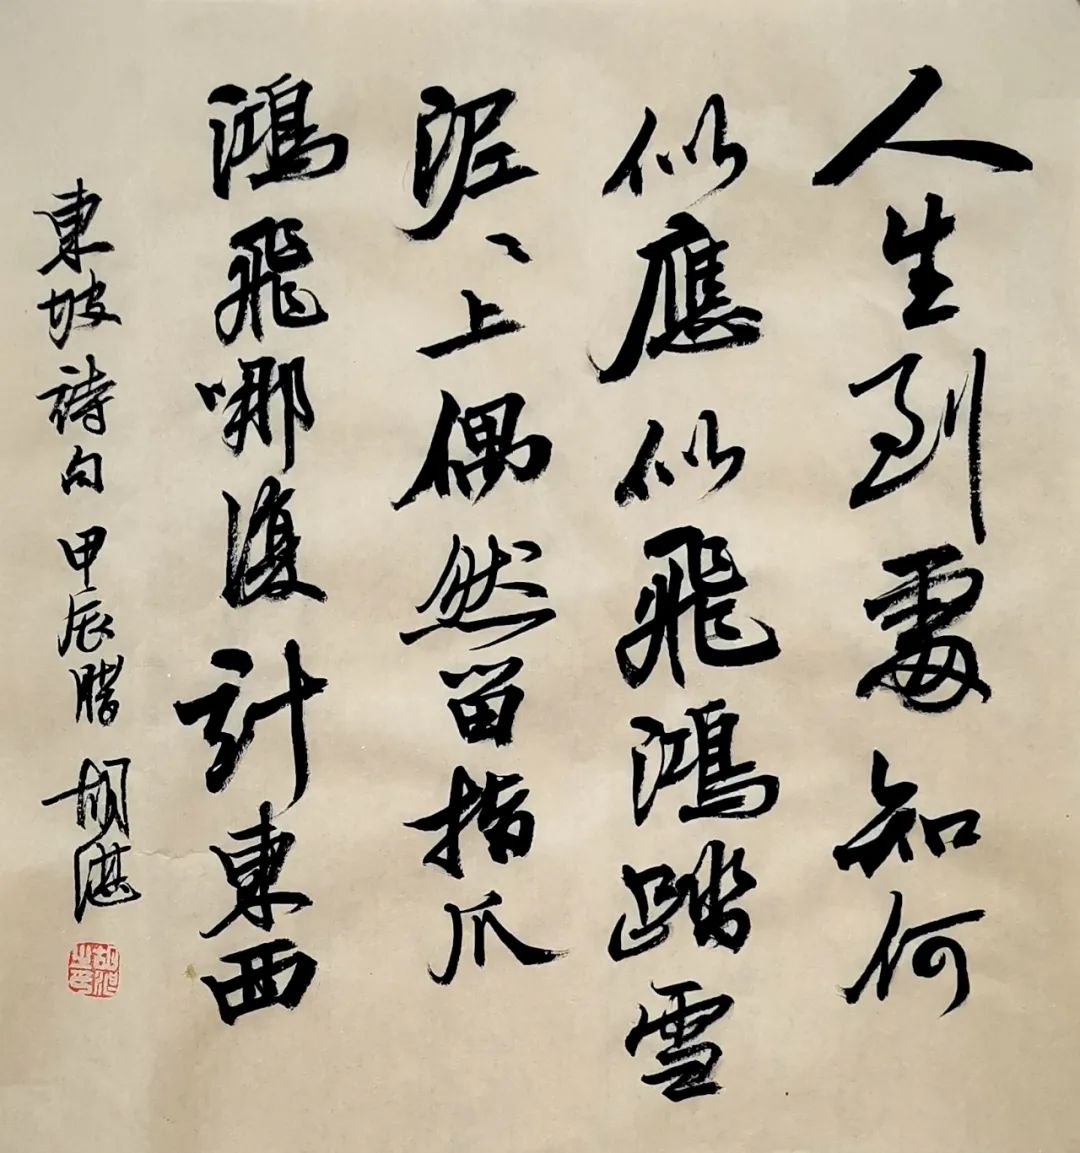 人生到處知何
似應似飛鴻踏雪
泥〻上偶然留指爪
鴻飛哪復計東西
東坡詩句甲辰腊胡湛